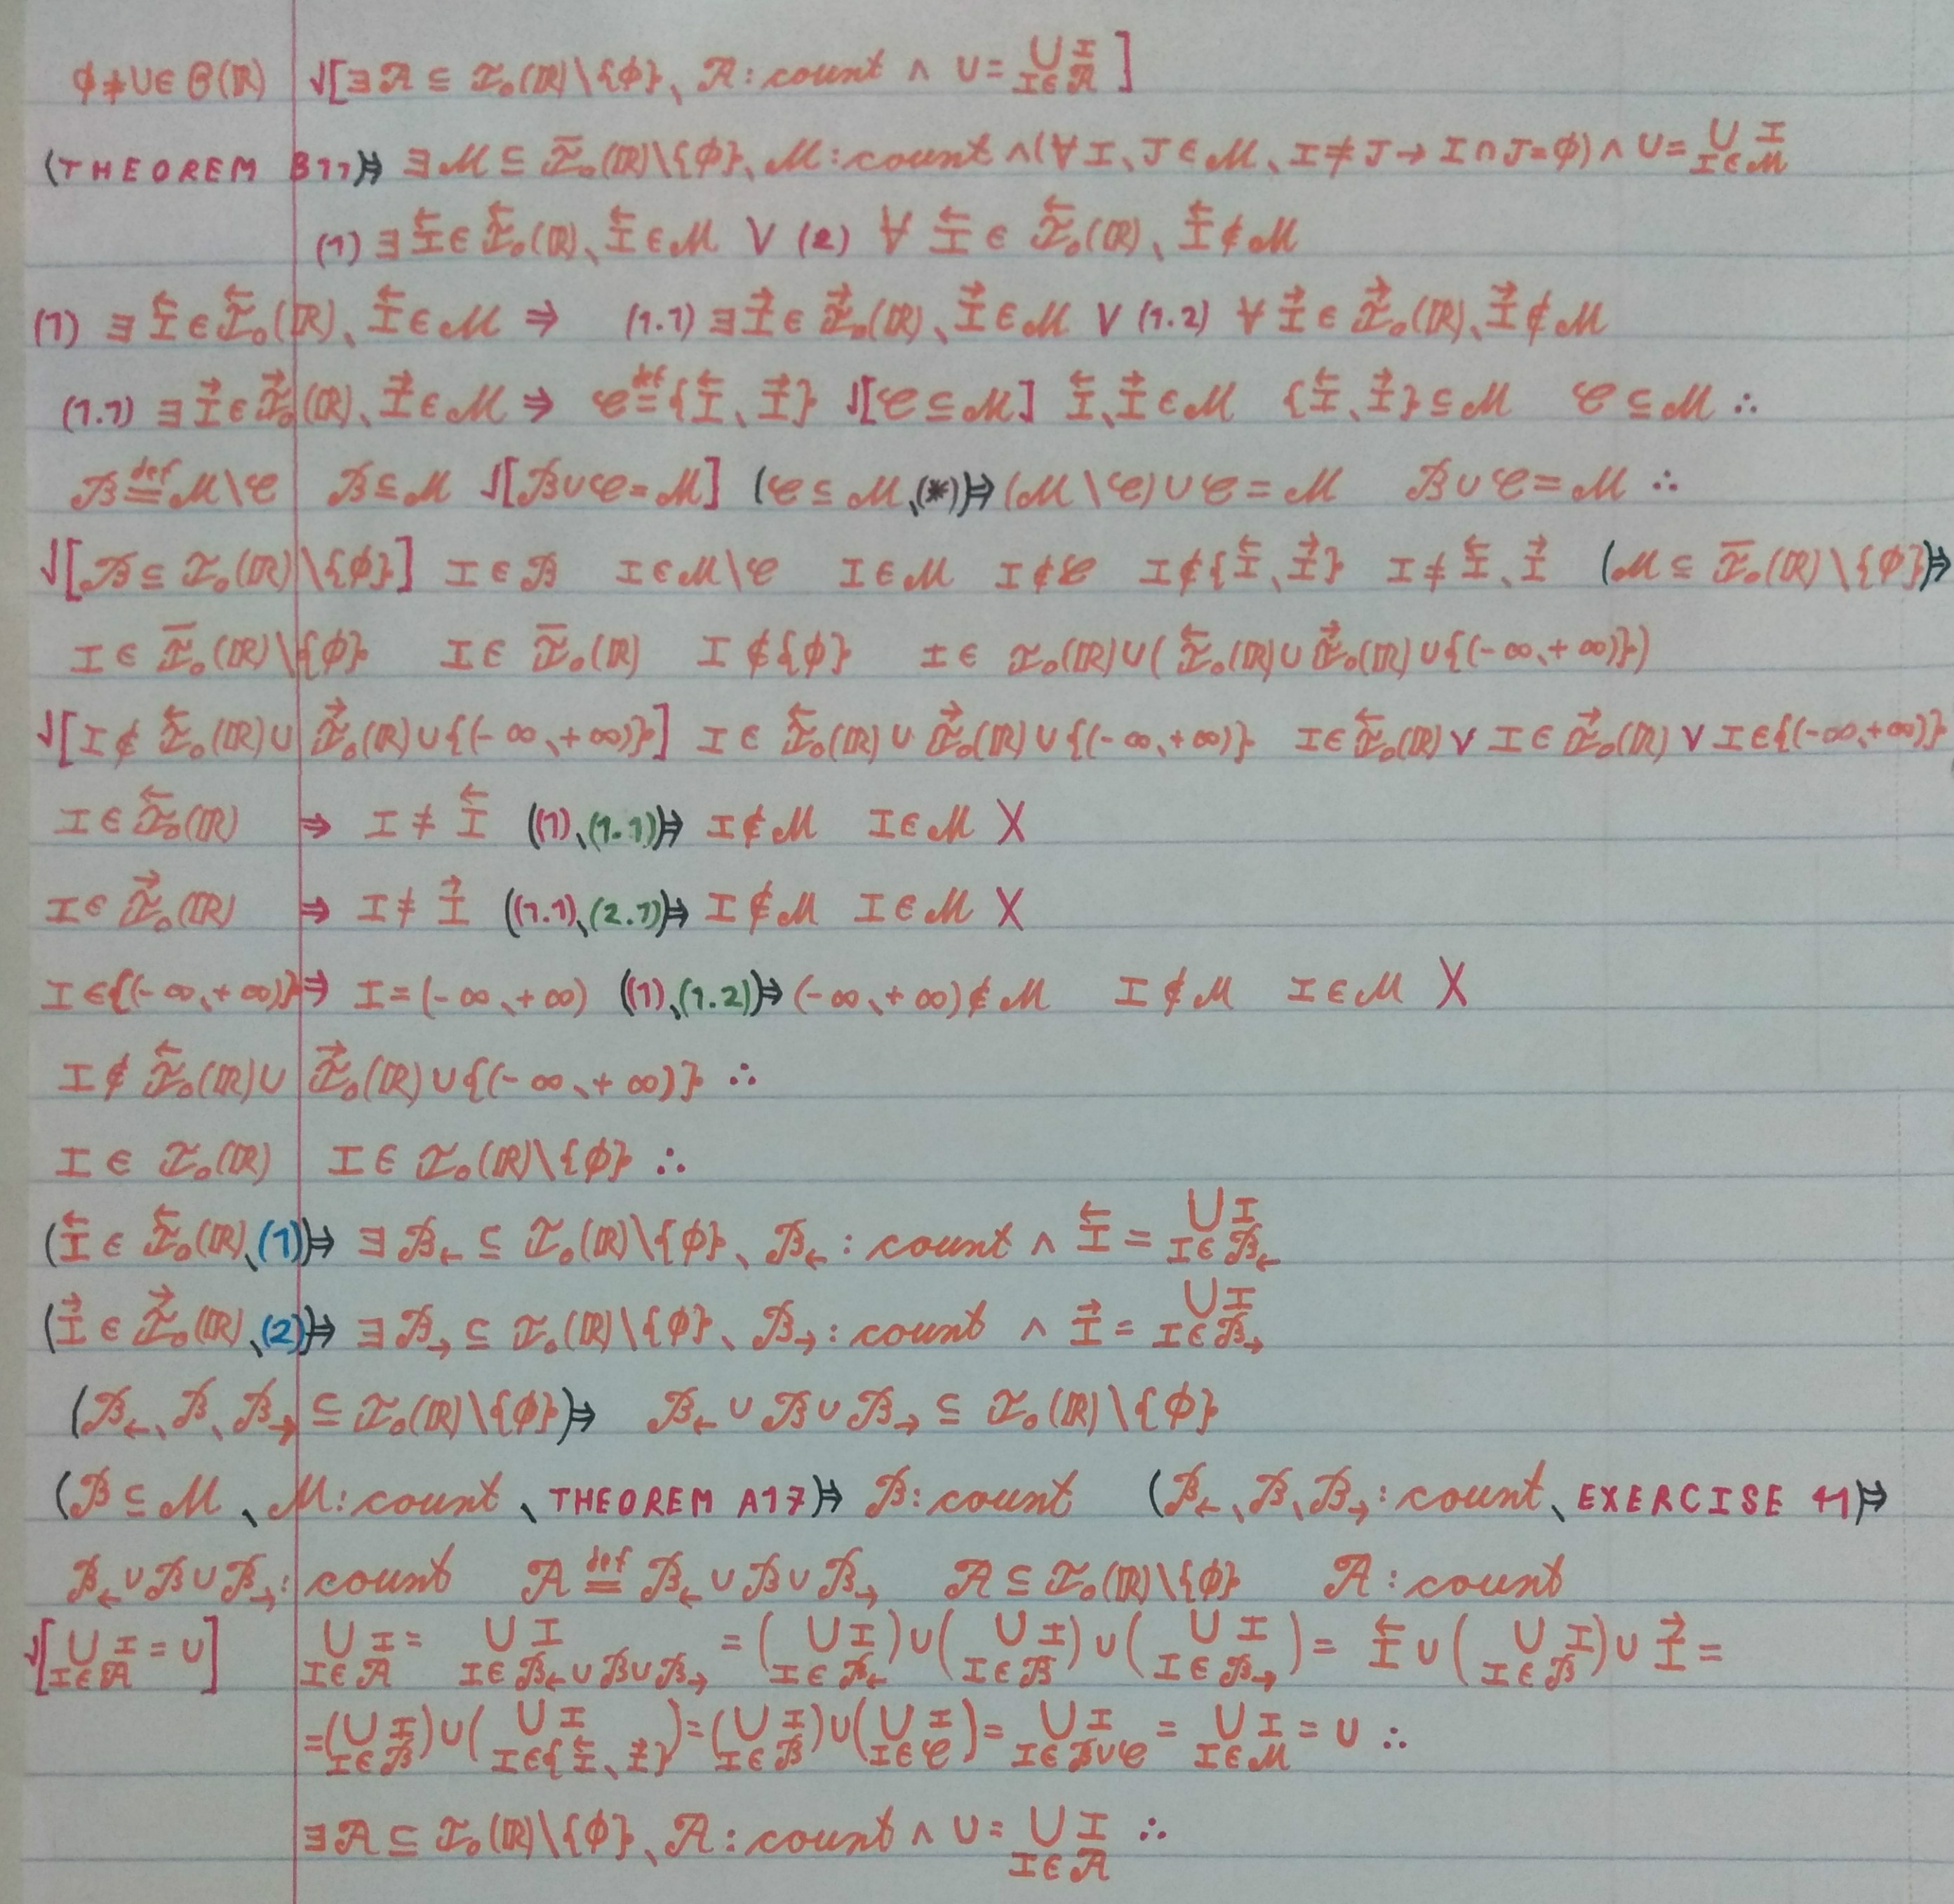 ∅≠U∈Θ(ℝ) √[∃𝒜⊆ℐₒ(ℝ)\{∅}、𝒜:count ∧ U=⋃_{I∈𝒜} I]
(THEOREM B11)⇒ ∃ℳ⊆ℐ̅ₒ(ℝ)\{∅}、ℳ:count ∧(∀I、J∈ℳ、I≠J→I∩J=∅)∧ U=⋃_{I∈ℳ} I
(1) ∃I⃖∈ℐ⃖ₒ(ℝ)、I⃖∈ℳ ∨ (2) ∀I⃖∈ℐ⃖ₒ(ℝ)、I⃖∉ℳ
(1) ∃I⃖∈ℐ⃖ₒ(ℝ)、I⃖∈ℳ ⇒ (1.1) ∃I⃗∈ℐ⃗ₒ(ℝ)、I⃗∈ℳ ∨ (1.2) ∀I⃗∈ℐ⃗ₒ(ℝ)、I⃗∉ℳ
(1.1) ∃I⃗∈ℐ⃗ₒ(ℝ)、I⃗∈ℳ ⇒ 𝒞 ≝ {I⃖、I⃗} √[𝒞⊆ℳ] I⃖、I⃗∈ℳ {I⃖、I⃗}⊆ℳ 𝒞⊆ℳ ∴
ℬ ≝ ℳ\𝒞 ℬ⊆ℳ √[ℬ∪𝒞=ℳ] (𝒞⊆ℳ、(*))⇒(ℳ\𝒞)∪𝒞=ℳ ℬ∪𝒞=ℳ ∴
√[ℬ⊆ℐₒ(ℝ)\{∅}] I∈ℬ I∈ℳ\𝒞 I∈ℳ I∉𝒞 I∉{I⃖、I⃗} I≠I⃖、I⃗ (ℳ⊆ℐ̅ₒ(ℝ)\{∅})⇒
I∈ℐ̅ₒ(ℝ)\{∅} I∈ℐ̅ₒ(ℝ) I∉{∅} I∈ℐₒ(ℝ)∪(ℐ⃖ₒ(ℝ)∪ℐ⃗ₒ(ℝ)∪{(-∞、+∞)})
√[I∉ℐ⃖ₒ(ℝ)∪ℐ⃗ₒ(ℝ)∪{(-∞、+∞)}] I∈ℐ⃖ₒ(ℝ)∪ℐ⃗ₒ(ℝ)∪{(-∞、+∞)} I∈ℐ⃖ₒ(ℝ)∨I∈ℐ⃗ₒ(ℝ)∨I∈{(-∞、+∞)}
I∈ℐ⃖ₒ(ℝ) ⇒ I≠I⃖ ((1)、(1.1))⇒ I∉ℳ I∈ℳ X
I∈ℐ⃗ₒ(ℝ) ⇒ I≠I⃗ ((1.1)、(2.1))⇒ I∉ℳ I∈ℳ X
I∈{(-∞、+∞)}⇒ I=(-∞、+∞) ((1)、(1.2))⇒(-∞、+∞)∉ℳ I∉ℳ I∈ℳ X
I∉ℐ⃖ₒ(ℝ)∪ℐ⃗ₒ(ℝ)∪{(-∞、+∞)} ∴
I∈ℐₒ(ℝ) I∈ℐₒ(ℝ)\{∅} ∴
(I⃖∈ℐ⃖ₒ(ℝ)、(1))⇒ ∃ℬ←⊆ℐₒ(ℝ)\{∅}、ℬ←:count ∧ I⃖=⋃_{I∈ℬ←} I
(I⃗∈ℐ⃗ₒ(ℝ)、(2))⇒ ∃ℬ→⊆ℐₒ(ℝ)\{∅}、ℬ→:count ∧ I⃗=⋃_{I∈ℬ→} I
(ℬ←、ℬ、ℬ→⊆ℐₒ(ℝ)\{∅})⇒ ℬ←∪ℬ∪ℬ→⊆ℐₒ(ℝ)\{∅}
(ℬ⊆ℳ、ℳ:count、THEOREM A17)⇒ ℬ:count (ℬ←、ℬ、ℬ→:count、EXERCISE 41)⇒
ℬ←∪ℬ∪ℬ→:count 𝒜 ≝ ℬ←∪ℬ∪ℬ→ 𝒜⊆ℐₒ(ℝ)\{∅} 𝒜:count
√[⋃_{I∈𝒜} I=U] ⋃_{I∈𝒜} I= ⋃_{I∈ℬ←∪ℬ∪ℬ→} I =(⋃_{I∈ℬ←} I)∪(⋃_{I∈ℬ} I)∪(⋃_{I∈ℬ→} I)= I⃖∪(⋃_{I∈ℬ} I)∪I⃗=
=(⋃_{I∈ℬ} I)∪(⋃_{I∈{I⃖、I⃗}} I)=(⋃_{I∈ℬ} I)∪(⋃_{I∈𝒞} I)= ⋃_{I∈ℬ∪𝒞} I = ⋃_{I∈ℳ} I = U ∴
∃𝒜⊆ℐₒ(ℝ)\{∅}、𝒜:count ∧ U=⋃_{I∈𝒜} I ∴